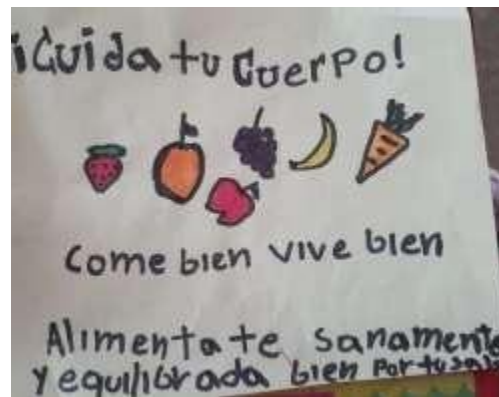 ¡Cuida tu Cuerpo!
Come bien vive bien
Alimentate sanamente
y equilibrada bien Por tu